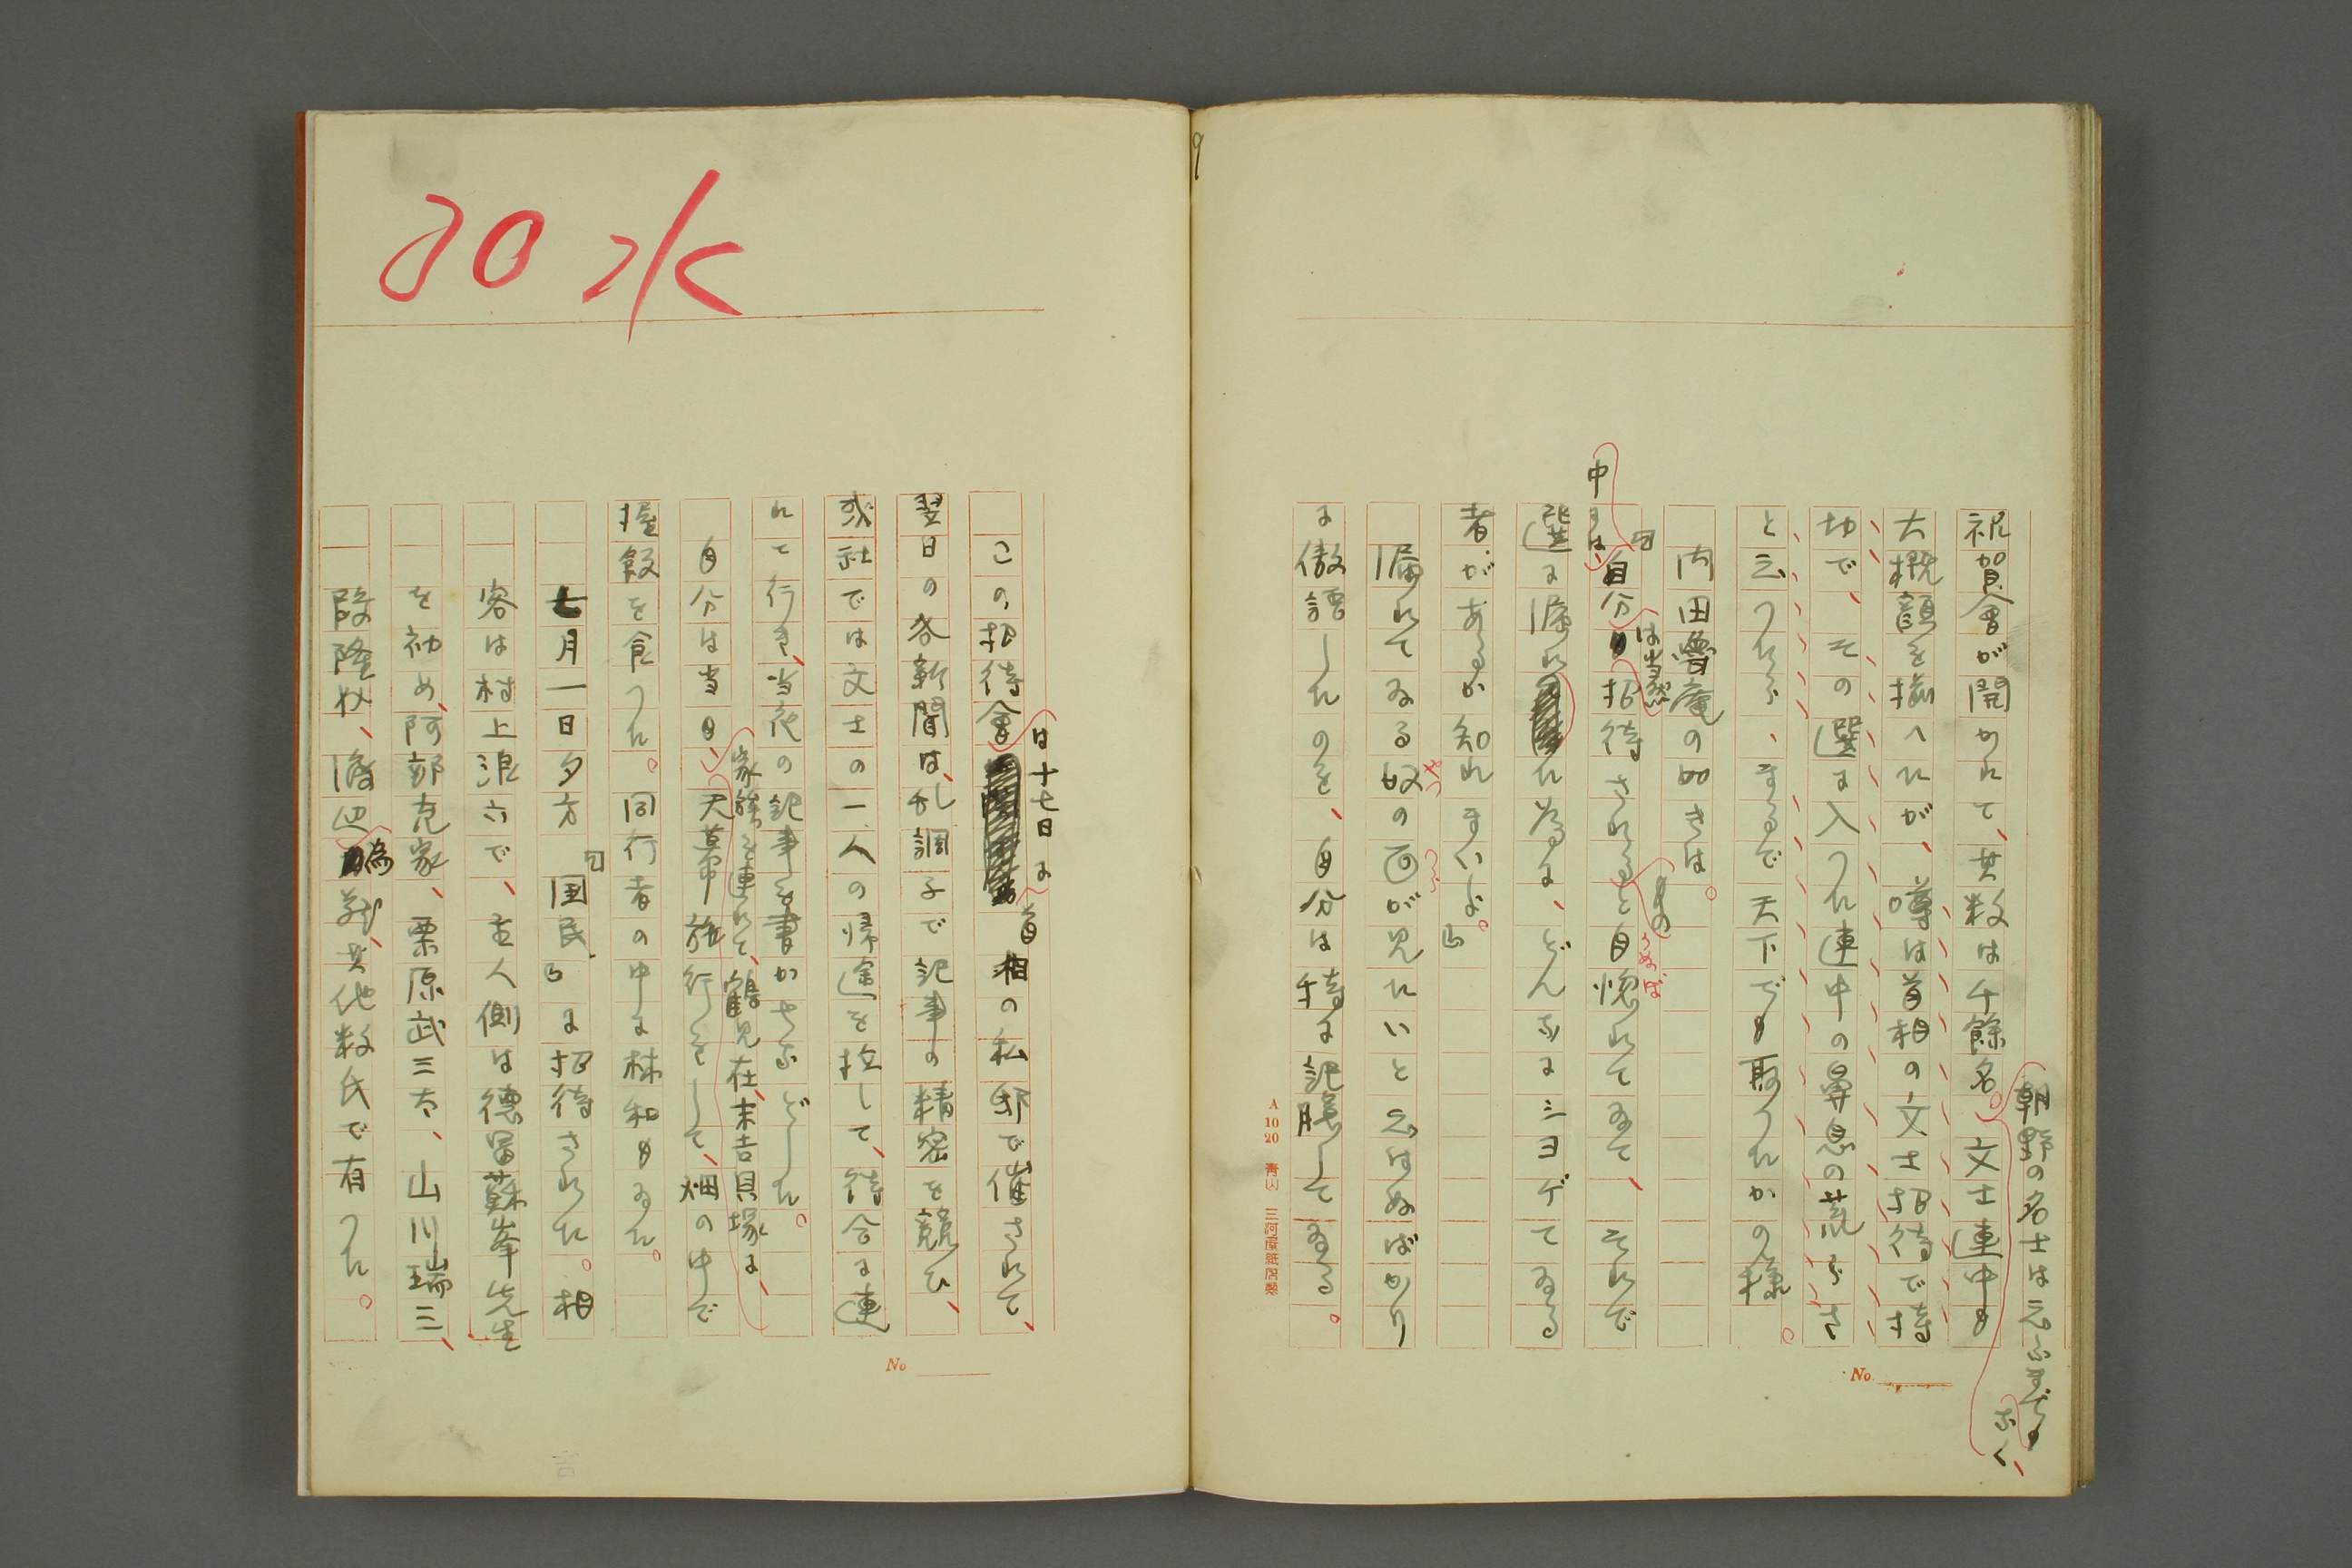 祝賀會が開かれて、其数は千餘名。朝野の名士は云ふまでもなく、文士連中も
大概顔を揃へたが、噂は首相の文士招待で持
切で、その選に入つた連中の鼻息の荒らさ
と云つたら、まるで天下でも取つたかの様。
内田魯庵の如きは。
『中には自分は当然招待されるものと自惚れてゐて、それで
選に漏れた為に、どんなにシヨゲてゐる
者があるか知れますいよ。』
漏れてゐる奴の面が見たいと云はぬばかり
に傲語したのを、自分は特に記臆してゐる。
A 10 20 青山 三河屋紙店製
No
30 水
この招待會は十七日に首相の私邸で催されて、
翌日の各新聞は、乱調子で記事の精密を競ひ、
或社では文士の一人の帰途を拉して、待合に連
れて行き、当夜の記事を書かせなどした。
自分は当日、家族を連れて、鶴見在、末吉貝塚に、天幕旅行をして、畑の中で
握飯を食つた。同行者の中に林和もゐた。
七月一日夕方『国民』に招待された。相
客は村上浪六で、主人側は徳冨蘇峯先生
を初め、阿部充家、栗原武三太、山川瑞三、
段隆奴、渡辺為蔵、其他数氏で有つた。
No